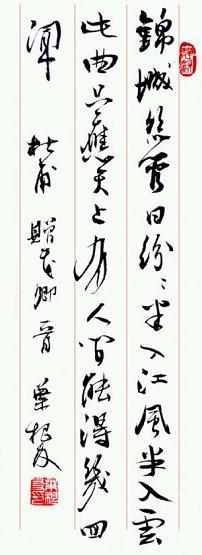 錦城絲管日紛〻半入江風半入雲
此曲只應天上有人間能得幾回
聞 杜甫 贈花卿 葉根友